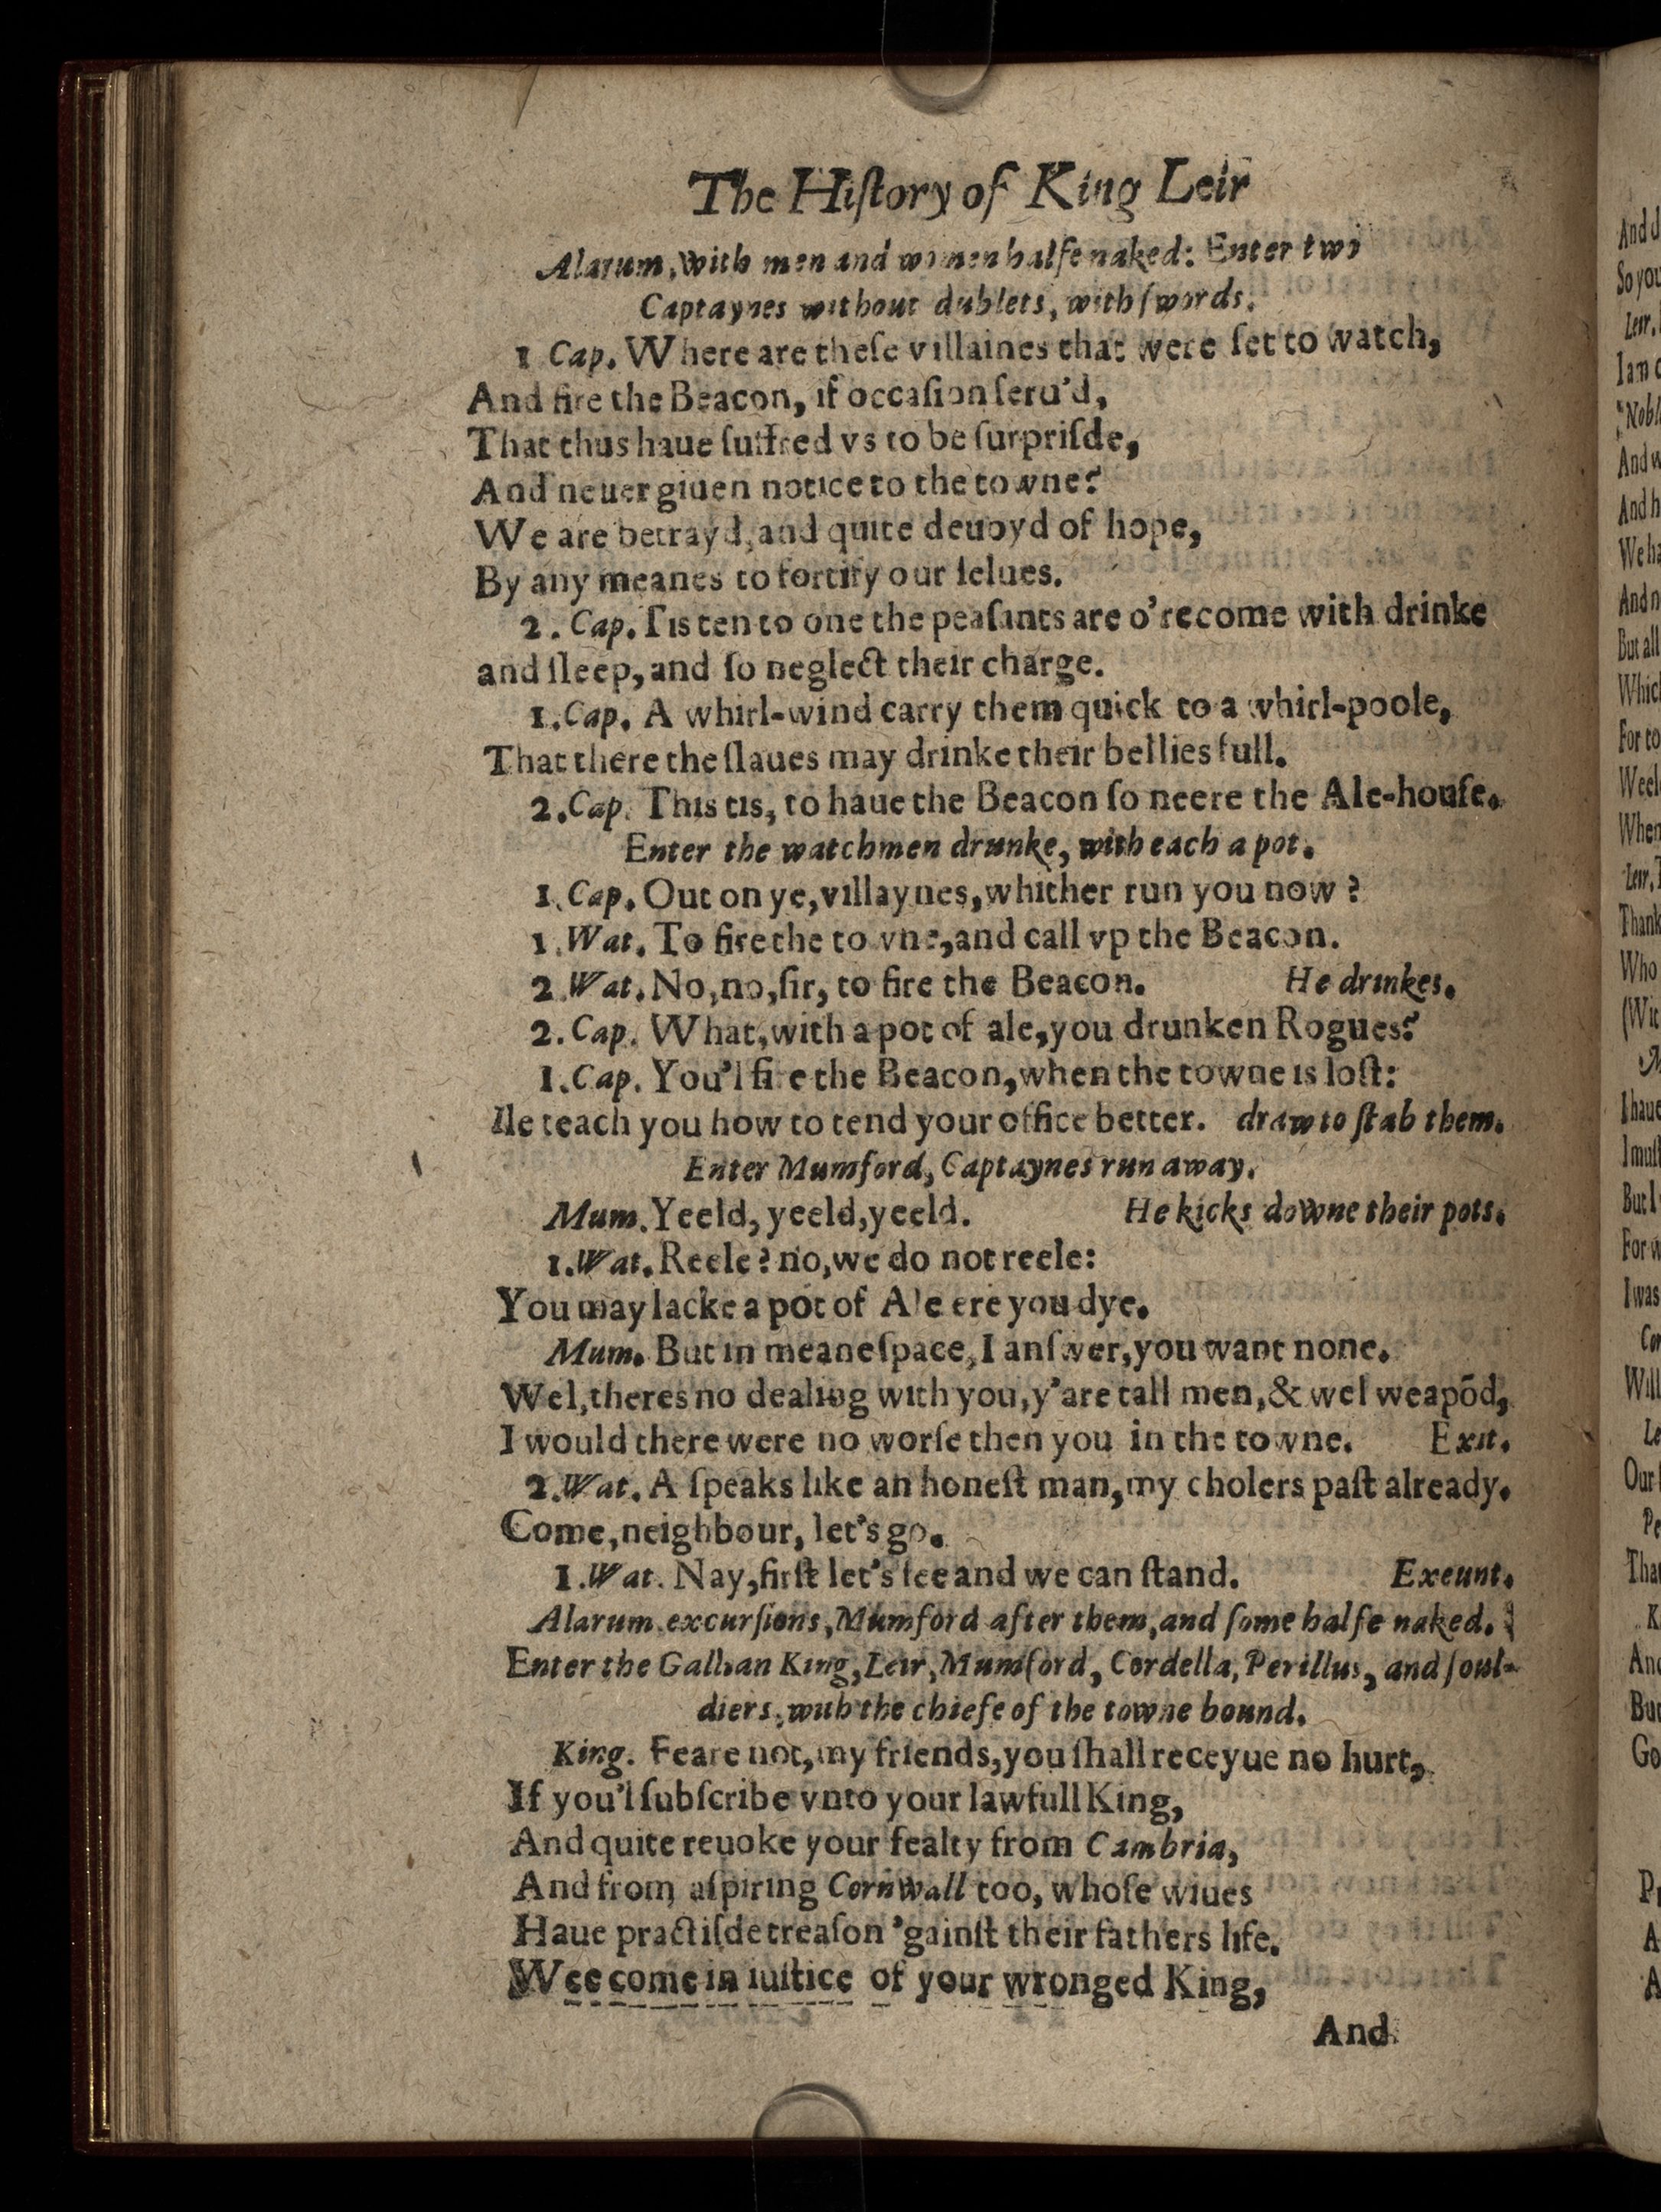 The Hiſtory of King Leir
Alarum, with men and women halfe naked: Enter two
Captaynes without dublets, with ſwords.
1 Cap. Where are theſe villaines that were ſet to watch,
And fire the Beacon, if occaſion ſeru'd,
That thus haue ſuffred vs to be ſurpriſde,
And neuer giuen notice to the towne?
We are betrayd, and quite deuoyd of hope,
By any meanes to fortify our ſelues.
2. Cap. Tis ten to one the peaſants are o'recome with drinke
and ſleep, and ſo neglect their charge.
1. Cap. A whirl-wind carry them quick to a whirl-poole,
That there the ſlaues may drinke their bellies full.
2. Cap. This tis, to haue the Beacon ſo neere the Ale-houſe.
Enter the watchmen drunke, with each a pot.
1. Cap. Out on ye, villaynes, whither run you now?
1. Wat. To fire the towne, and call vp the Beacon.
2. Wat. No, no, ſir, to fire the Beacon. He drinkes.
2. Cap. What, with a pot of ale, you drunken Rogues?
1. Cap. You'l fire the Beacon, when the towne is loſt:
Ile teach you how to tend your office better. draw to ſtab them.
Enter Mumford, Captaynes run away.
Mum. Yeeld, yeeld, yeeld. He kicks downe their pots.
1. Wat. Reele? no, we do not reele:
You may lacke a pot of Ale ere you dye.
Mum. But in meane ſpace, I anſwer, you want none.
Wel, theres no dealing with you, y'are tall men, & wel weapōd,
I would there were no worſe then you in the towne. Exit.
2. Wat. A ſpeaks like an honeſt man, my cholers paſt already.
Come, neighbour, let's go.
1. Wat. Nay, firſt let's ſee and we can ſtand. Exeunt.
Alarum, excurſions, Mumford after them, and ſome halfe naked.
Enter the Gallian King, Leir, Mumford, Cordella, Perillus, and ſoul-
diers, with the chiefe of the towne bound.
King. Feare not, my friends, you ſhall receyue no hurt,
If you'l ſubſcribe vnto your lawfull King,
And quite reuoke your fealty from Cambria,
And from aſpiring Cornwall too, whoſe wiues
Haue practiſde treaſon 'gainſt their fathers life.
Wee come in iuſtice of your wronged King,
And